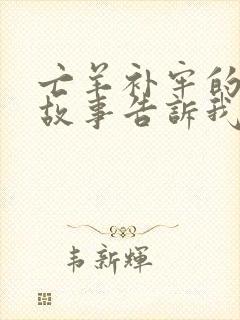 亡羊补牢的
故事告訴我
韦新輝